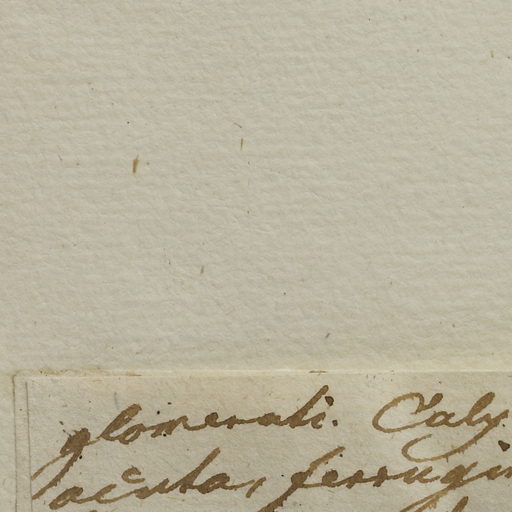 glomerati. Caly
acuta, ferrugin